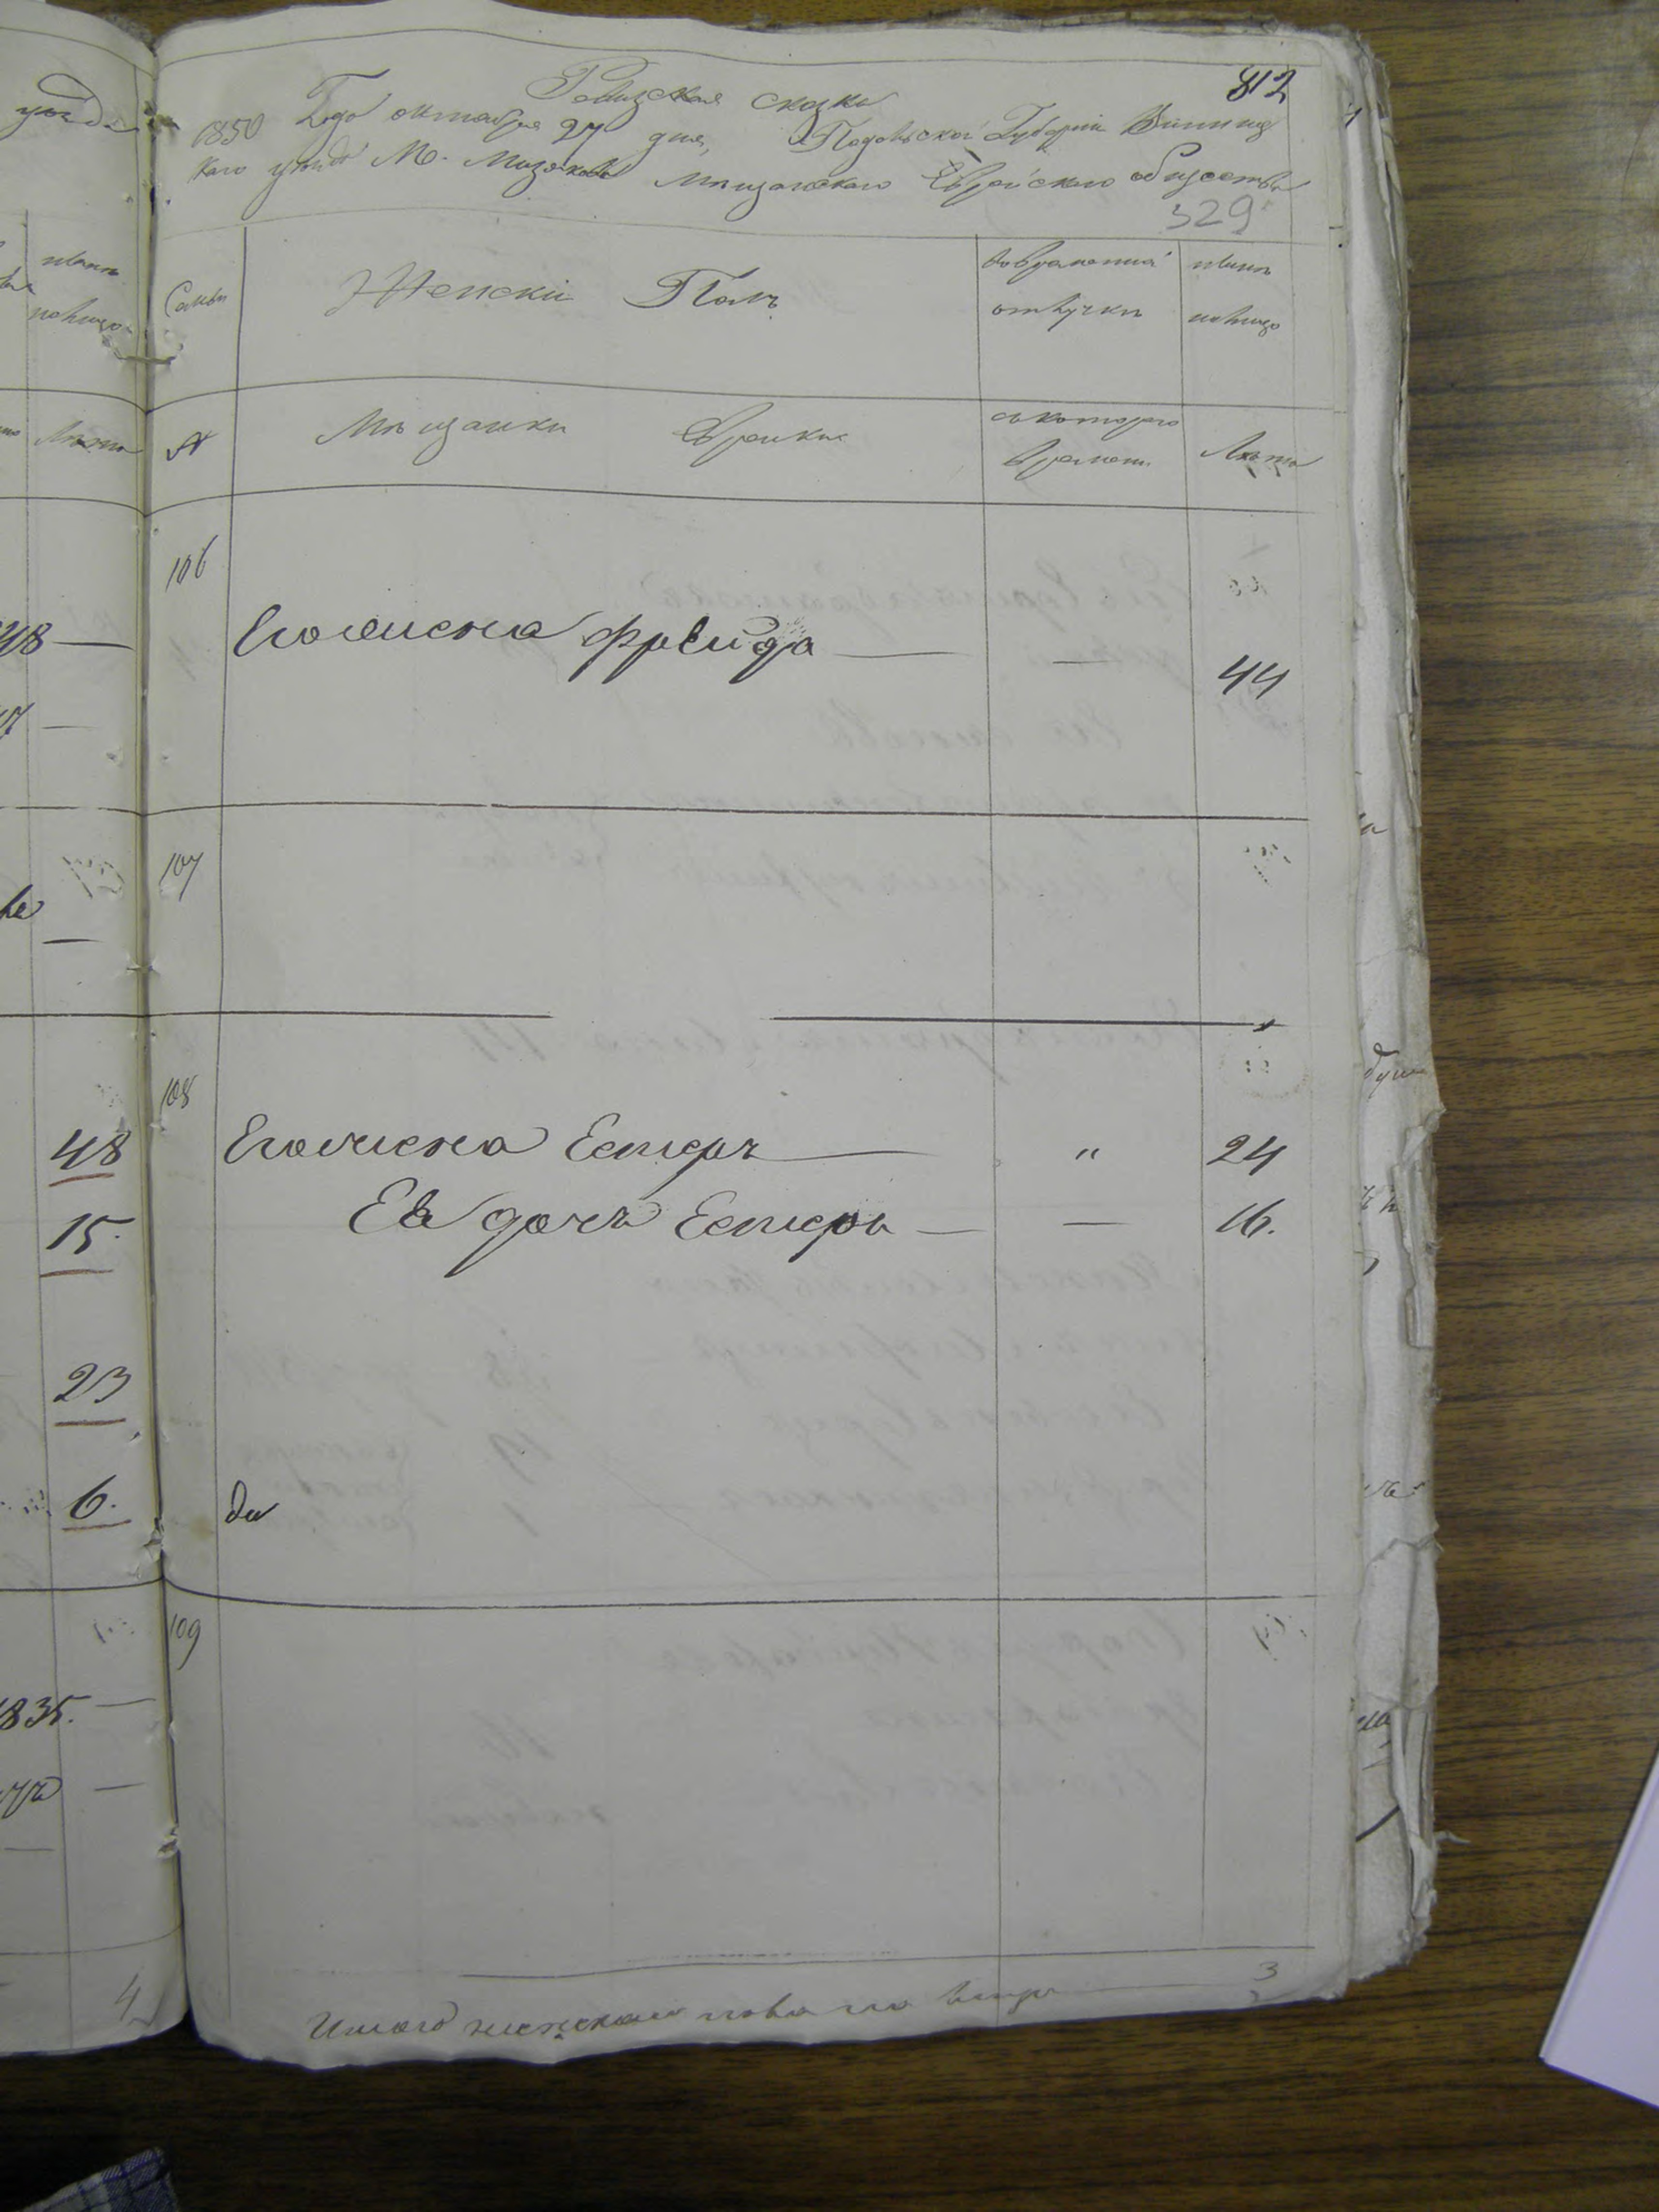 812
Ревизская сказка
1850 Года октября 27 дня, Подольской Губернии Винниц
каго уезда М. Мизякова мещанского Еврейского общества
329
Семьи
Женский Полъ
Во временной отлучки
ныне налицо
№
Мещанки Еврейки
съ котораго времени
Лета
106
Его жена Фрейда — — 44
107
108
Его жена Естеръ — " 24
Её дочь Естеръ — — 16.
да
109
Итого женскаго пола на лицо 3
уезда
ныне
налицо
Лета
48 —
48
15.
23
6.
1835. —
4